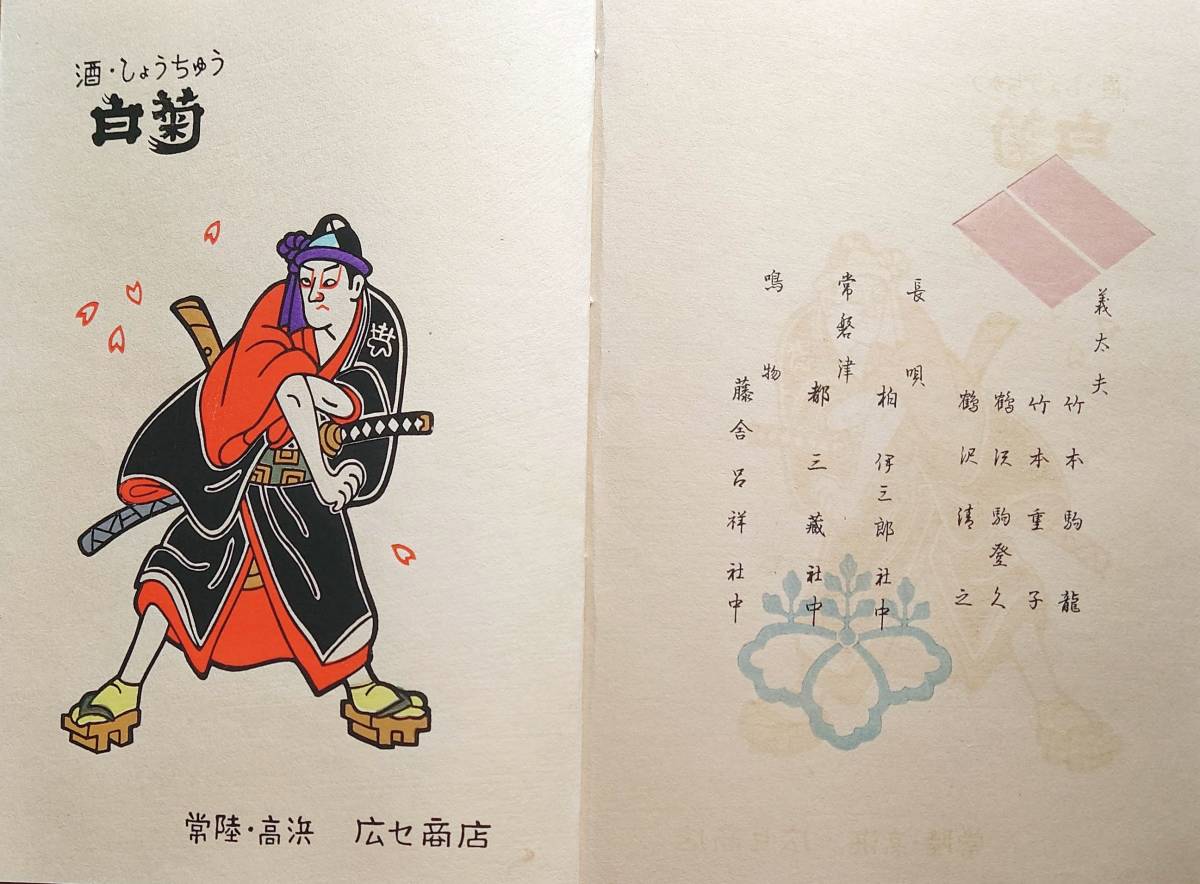 酒・しょうちゅう
白菊
常陸・高浜 広セ商店
義太夫
竹本駒龍
竹本重子
鶴沢駒登久
鶴沢清之
長唄
柏伊三郎社中
常磐津
都三蔵社中
鳴物
藤舎呂祥社中